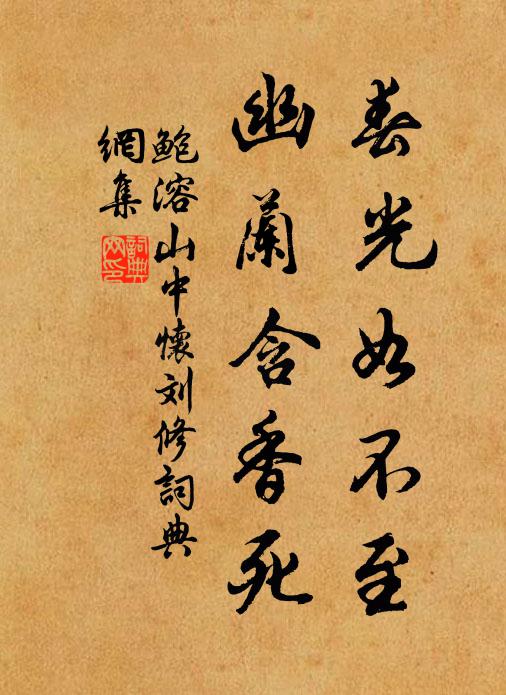 春光如不至
幽蘭含香死
鲍溶山中懷刘修詞典
網集
詞典
网印